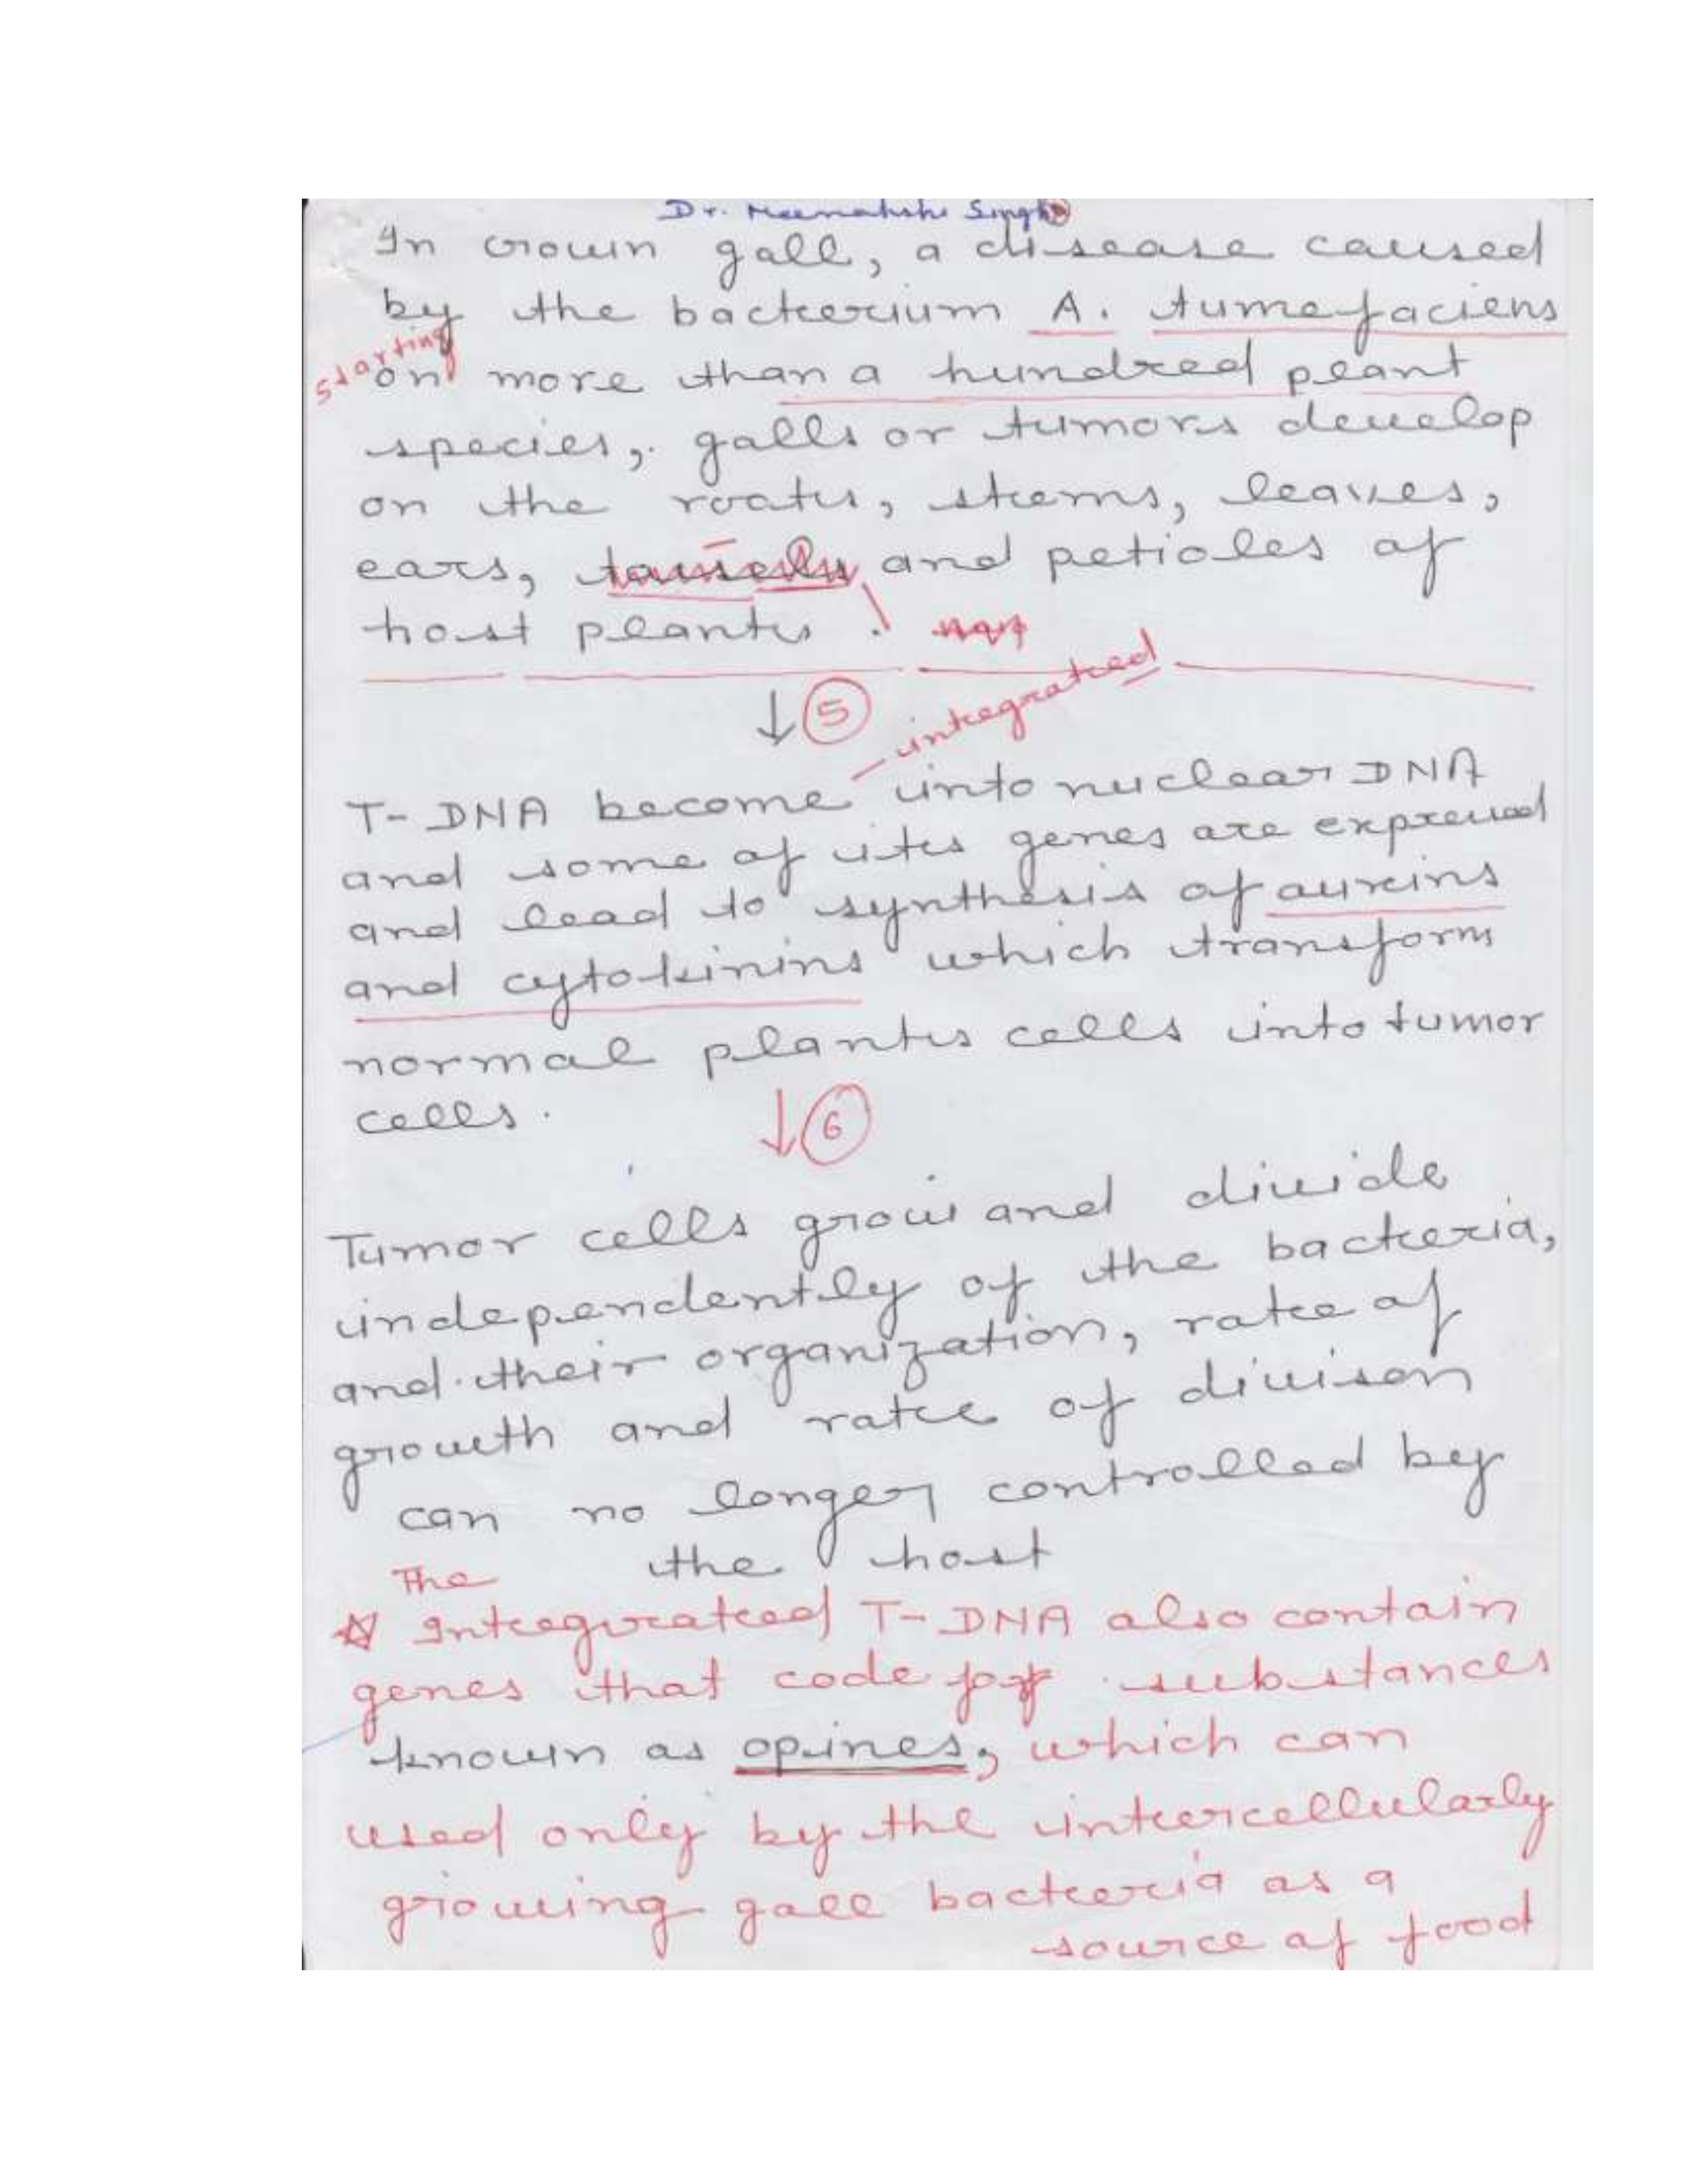 Dr. Meenakshi Singh
In crown gall, a disease caused
by the bacterium A. tumefaciens
starting
on more than a hundred plant
species, galls or tumors develop
on the roots, stems, leaves,
ears, tassels, and petioles of
host plants.
↓ 5
integrated
T-DNA become into nuclear DNA
and some of its genes are expressed
and lead to synthesis of auxins
and cytokinins which transform
normal plants cells into tumor
cells.
↓ 6
Tumor cells grow and divide
independently of the bacteria,
and their organization, rate of
growth and rate of divison
can no longer controlled by
the host
The
☆ Integrated T-DNA also contain
genes that code for substances
known as opines, which can
used only by the intercellularly
growing gall bacteria as a
source of food